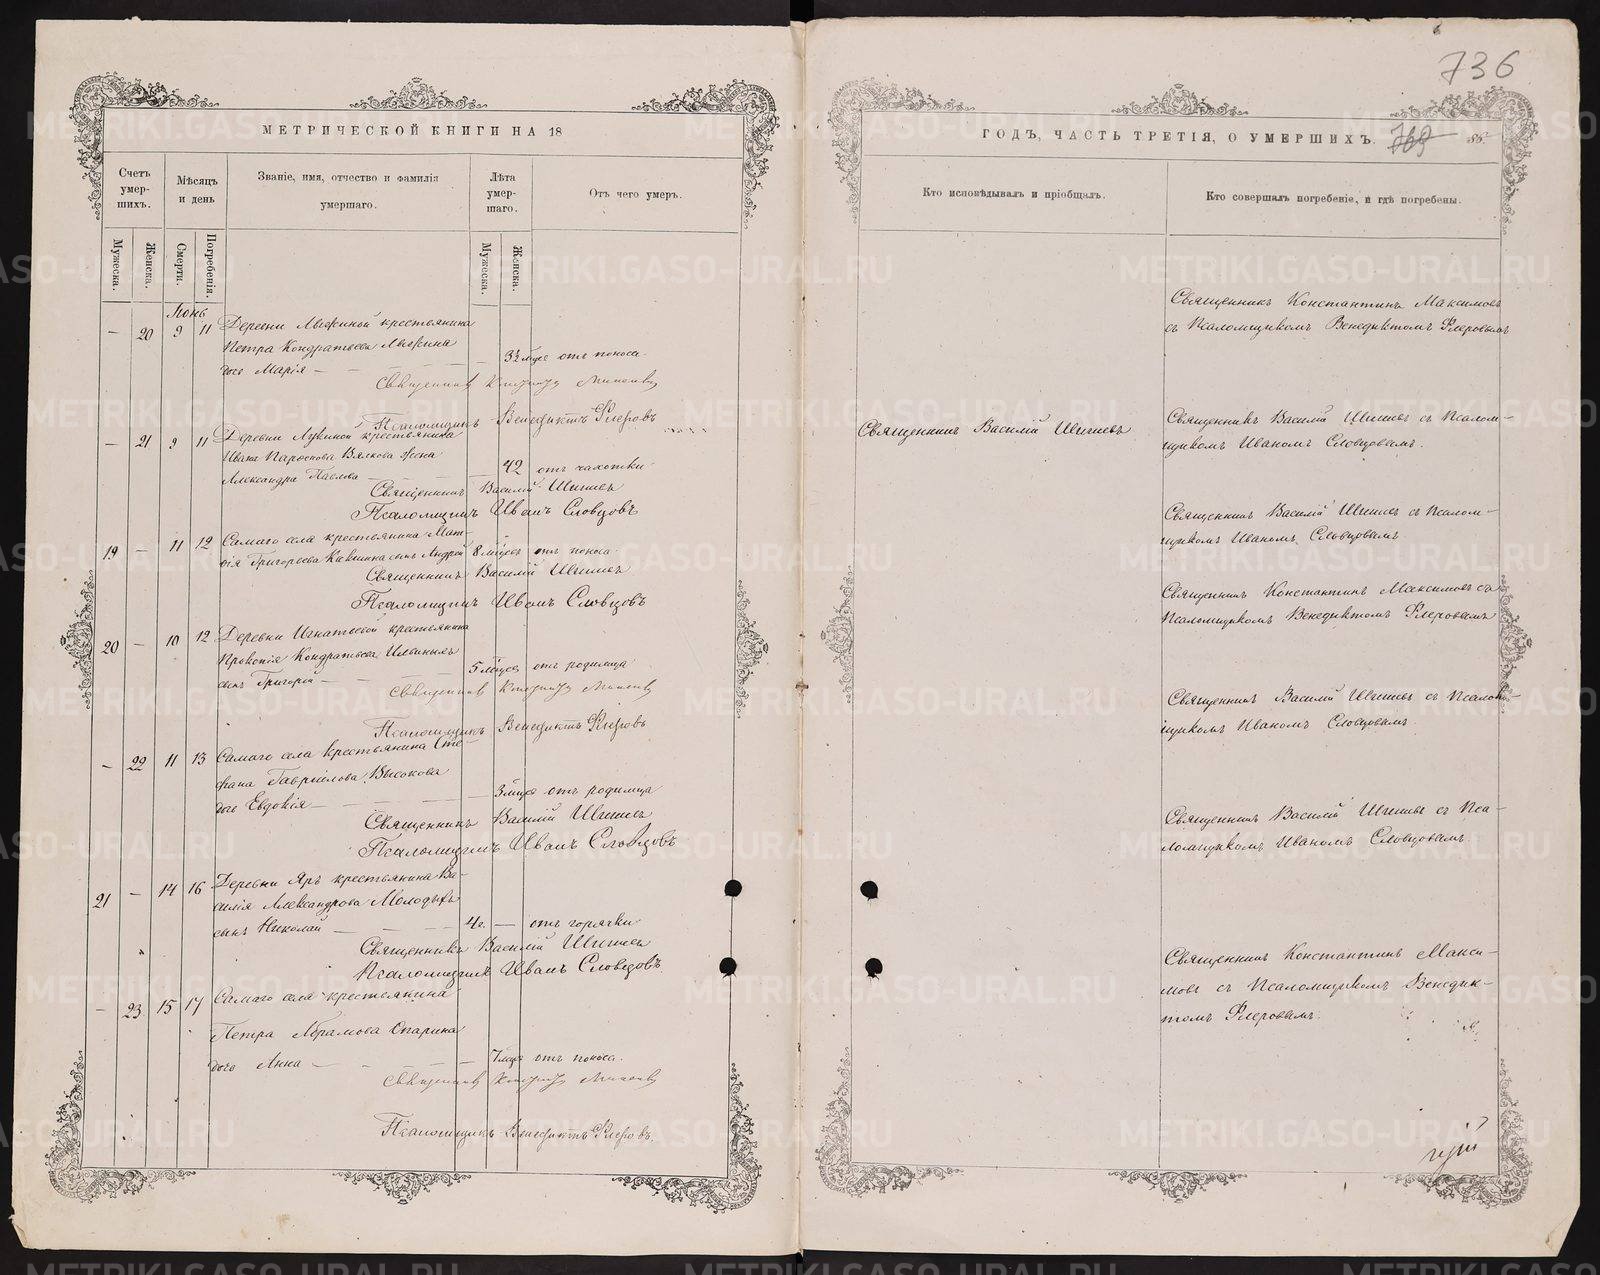 736
МЕТРИЧЕСКОЙ КНИГИ НА 18
Счетъ умершихъ.
Мѣсяцъ и день
Званіе, имя, отчество и фамилія умершаго.
Лѣта умершаго.
Отъ чего умеръ.
Мужеска.
Женска.
Смерти.
Погребенія.
Мужеска.
Женска.
— 20 9 11 Деревни крестьянина
Петра Кондратьева
дочь Марія — 3½ мцсе отъ поноса.
Священникъ
Псаломщикъ Венедиктъ Флеровъ
— 21 9 11 Деревни крестьянина
Ивана Вялкова жена
Александра Павлова — 42 отъ чахотки
Священникъ Василій Шишевъ
Псаломщикъ Иванъ Словцовъ
19 — 11 12 Самаго села крестьянина Мат-
ѳія Григорьева сынъ Андрей 8 мцсевъ отъ поноса
Священникъ Василій Шишевъ
Псаломщикъ Иванъ Словцовъ
20 — 10 12 Деревни Игнатьевой крестьянина
Прокопія Кондратьева Ильиныхъ
сынъ Григорій — 5 мцсев отъ родимца
Священникъ
Псаломщикъ Венедиктъ Флеровъ
— 22 11 13 Самаго села крестьянина Сте-
фана Гавриилова Высокова
дочь Евдокія — 3 мцсе отъ родимца
Священникъ Василій Шишевъ
Псаломщикъ Иванъ Словцовъ
21 — 14 16 Деревни Яръ крестьянина Ва-
силія Александрова Молодыхъ
сынъ Николай — 4 г. — отъ горячки
Священникъ Василій Шишевъ
Псаломщикъ Иванъ Словцовъ
— 23 15 17 Самаго села крестьянина
Петра Абрамова Опарина
дочь Анна — 7 мцсе отъ поноса.
Священникъ
Псаломщикъ Венедиктъ Флеровъ.
ГОДЪ, ЧАСТЬ ТРЕТІЯ, О УМЕРШИХЪ. 769 86.
Кто исповѣдывалъ и пріобщалъ.
Кто совершалъ погребеніе, и гдѣ погребены.
Священникъ Константинъ Максимовъ
съ Псаломщикомъ Венедиктомъ Флеровымъ
Священникъ Василій Шишевъ
Священникъ Василій Шишевъ съ Псалом-
щикомъ Иваномъ Словцовымъ.
Священникъ Василій Шишевъ съ Псалом-
щикомъ Иваномъ Словцовымъ
Священникъ Константинъ Максимовъ съ
Псаломщикомъ Венедиктомъ Флеровымъ
Священникъ Василій Шишевъ съ Псалом-
щикомъ Иваномъ Словцовымъ.
Священникъ Василій Шишевъ съ Пса-
ломщикомъ Иваномъ Словцовымъ.
Священникъ Константинъ Макси-
мовъ съ Псаломщикомъ Венедик-
томъ Флеровымъ.
METRIKI.GASO-URAL.RU